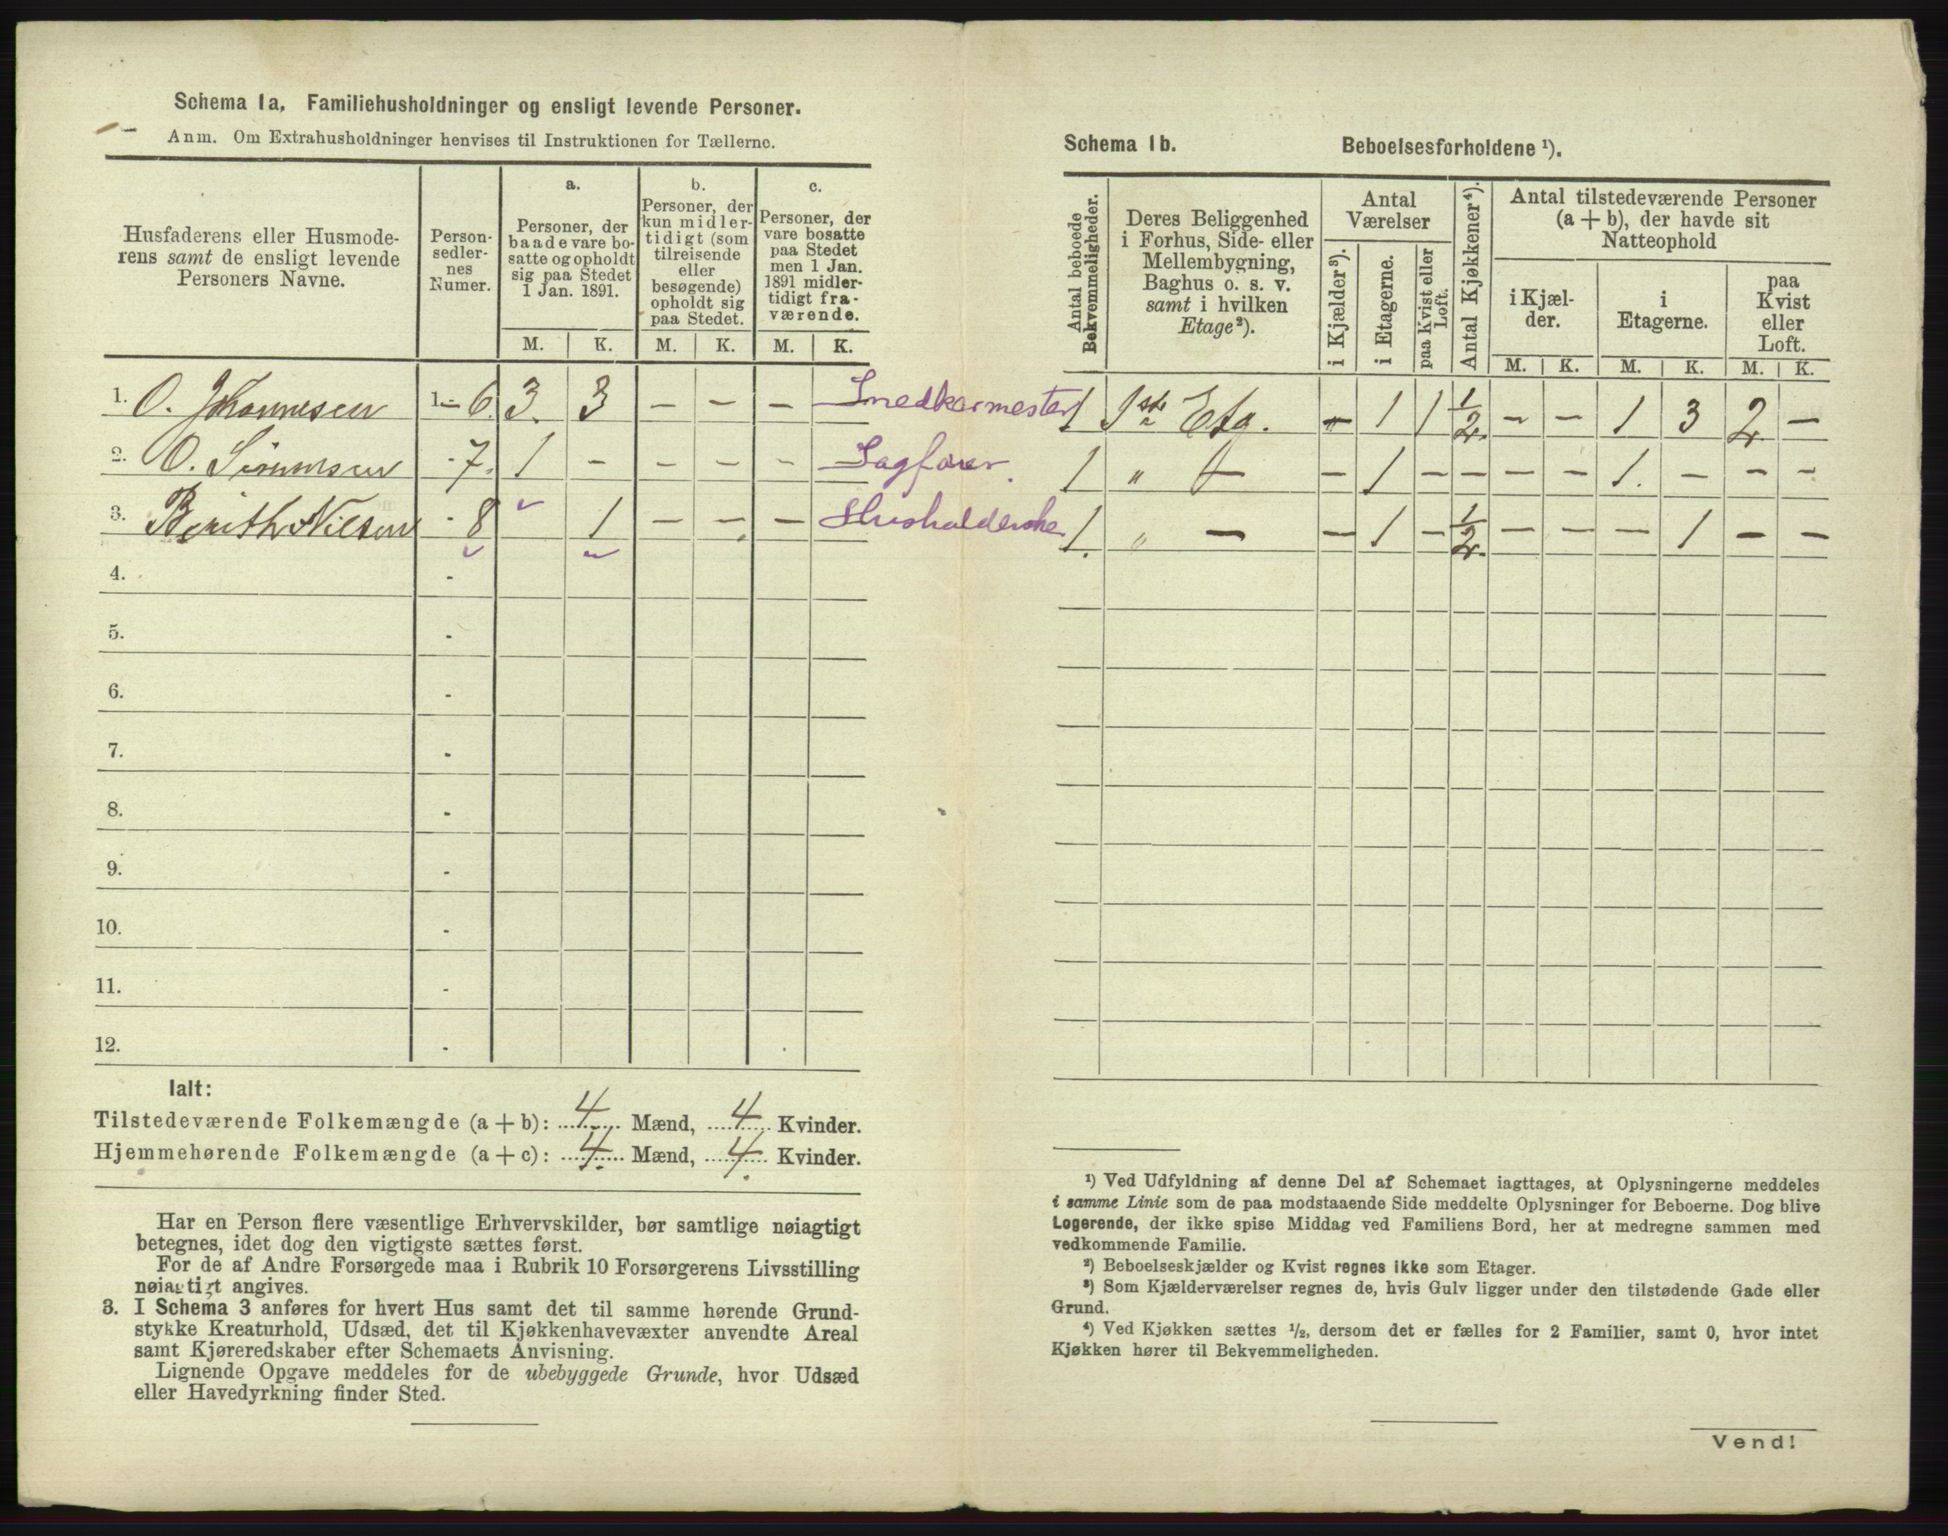 Schema 1a, Familiehusholdninger og ensligt levende Personer.
Anm. Om Extrahusholdninger henvises til Instruktionen for Tællerne.
Husfaderens eller Husmode-
rens samt de ensligt levende
Personers Navne.
Person-
sedler-
nes
Numer.
a.
Personer, der
baade vare bo-
satte og opholdt
sig paa Stedet
1 Jan. 1891.
b.
Personer, der
kun midler-
tidigt (som
tilreisende
eller
besøgende)
opholdt sig
paa Stedet.
c.
Personer, der
vare bosatte
paa Stedet
men 1 Jan.
1891 midler-
tidigt fra-
værende.
M. K. M. K. M. K.
1. O. Johannesen 1 - 6. 3. 3 – – – Snedkermester
2. O. Simmesen - 7. 1 – – – – Sagfører.
3. Berith Nilsen - 8 1 – – – Husholderske
4. -
5. -
6. -
7. -
8. -
9. -
10. -
11. -
12. -
Ialt:
Tilstedeværende Folkemængde (a + b): 4 Mænd, 4 Kvinder.
Hjemmehørende Folkemængde (a + c): 4 Mænd, 4 Kvinder.
Har en Person flere væsentlige Erhvervskilder, bør samtlige nøiagtigt
betegnes, idet dog den vigtigste sættes først.
For de af Andre Forsørgede maa i Rubrik 10 Forsørgerens Livsstilling
nøiagtigt angives.
3. I Schema 3 anføres for hvert Hus samt det til samme hørende Grund-
stykke Kreaturhold, Udsæd, det til Kjøkkenhavevæxter anvendte Areal
samt Kjøreredskaber efter Schemaets Anvisning.
Lignende Opgave meddeles for de ubebyggede Grunde, hvor Udsæd
eller Havedyrkning finder Sted.
Schema 1b. Beboelsesforholdene ¹).
Antal beboede
Bekvemmeligheder.
Deres Beliggenhed
i Forhus, Side- eller
Mellembygning,
Baghus o. s. v.
samt i hvilken
Etage ²).
Antal
Værelser
i Kjælder ³).
i Etagerne.
paa Kvist eller
Loft.
Antal Kjøkkener ⁴).
Antal tilstedeværende Personer
(a + b), der havde sit
Natteophold
i Kjæl-
der.
i
Etagerne.
paa
Kvist
eller
Loft.
M. K. M. K. M. K.
1 1ste Etg. – 1 1 1/2. – – 1 3 2 –
1 " – – 1 – – – – 1. – – –
1. " – – 1 – 1/2. – – – 1 – –
¹) Ved Udfyldning af denne Del af Schemaet iagttages, at Oplysningerne meddeles
i samme Linie som de paa modstaaende Side meddelte Oplysninger for Beboerne. Dog blive
Logerende, der ikke spise Middag ved Familiens Bord, her at medregne sammen med
vedkommende Familie.
²) Beboelseskjælder og Kvist regnes ikke som Etager.
³) Som Kjælderværelser regnes de, hvis Gulv ligger under den tilstødende Gade eller
Grund.
⁴) Ved Kjøkken sættes ½, dersom det er fælles for 2 Familier, samt 0, hvor intet
Kjøkken hører til Bekvemmeligheden.
Vend!